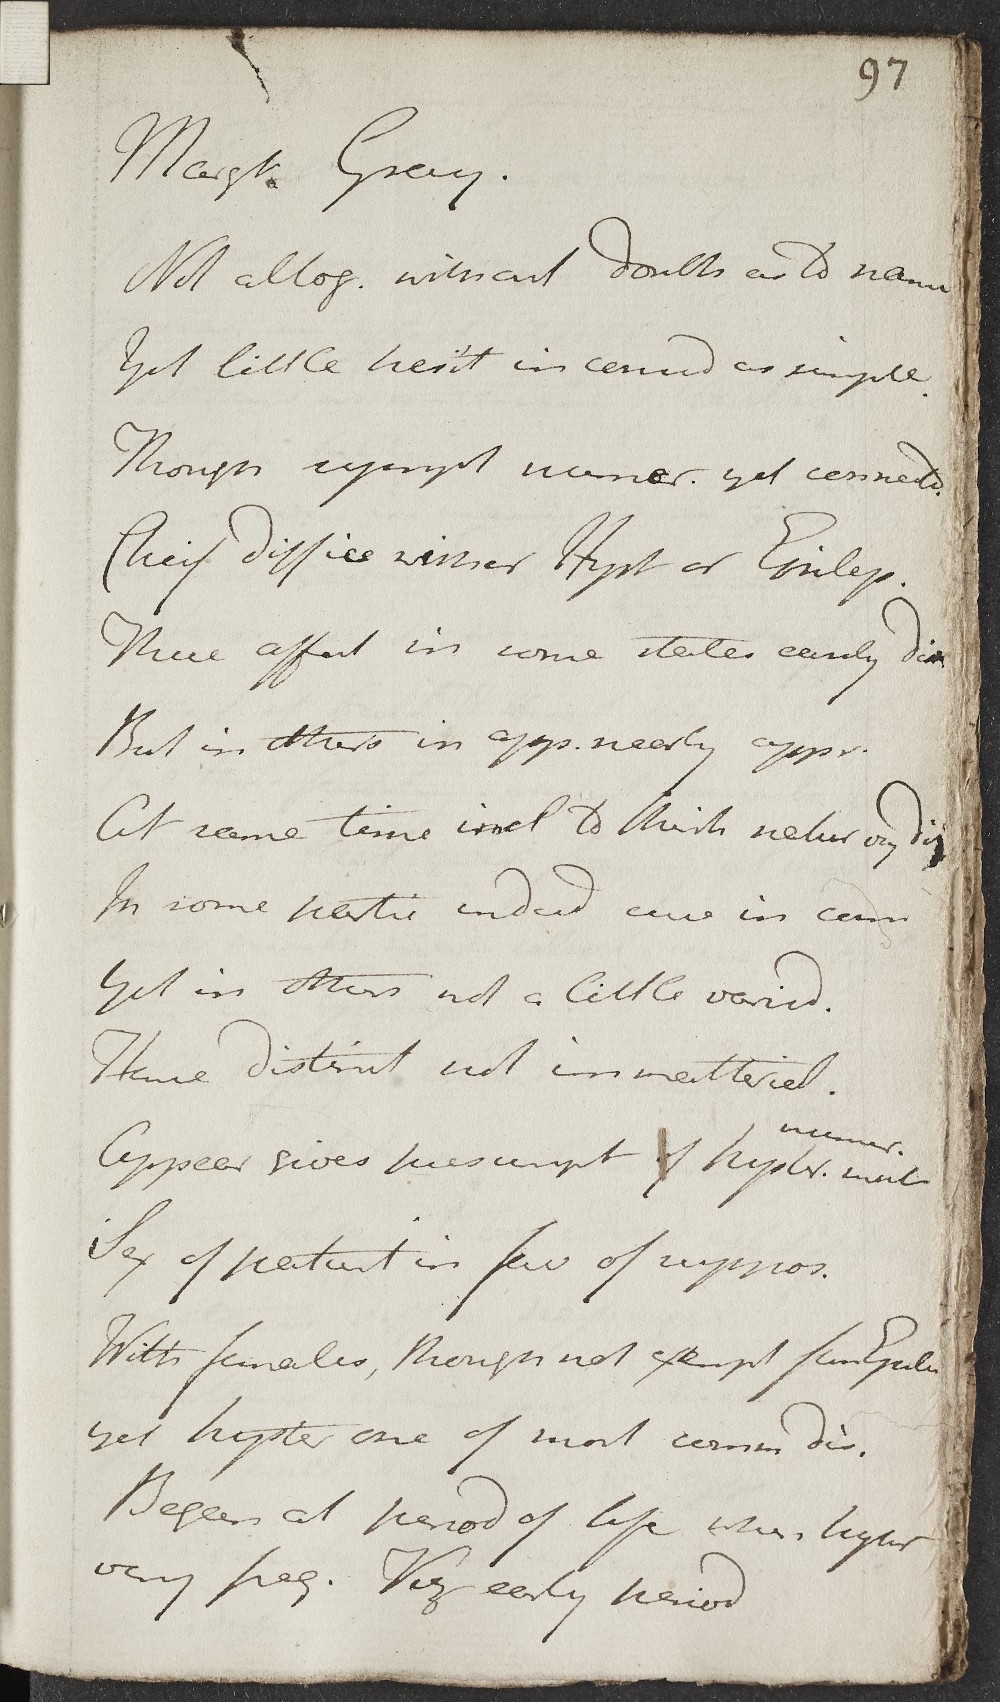 97
Margt. Gray.
Not altog. without doubts as to name
Yet little hesit in consid as simple.
Though sympt numer. yet connectd.
Cheif difficc whether Hyst or Epilep.
These affect in some states easily dis
But in others in app. nearly appr.
At same time incl to think nature of dis
In some partic indeed cure in com
Yet in others not a little varied.
Hence distinct not immatterial.
Appear gives presumpt of hyster. numer. most
Sex of patient in fav of suppos.
With females, though not exempt from Epilep
yet hyster one of most comm dis.
Began at period of life when hyster
very freq. Viz early period